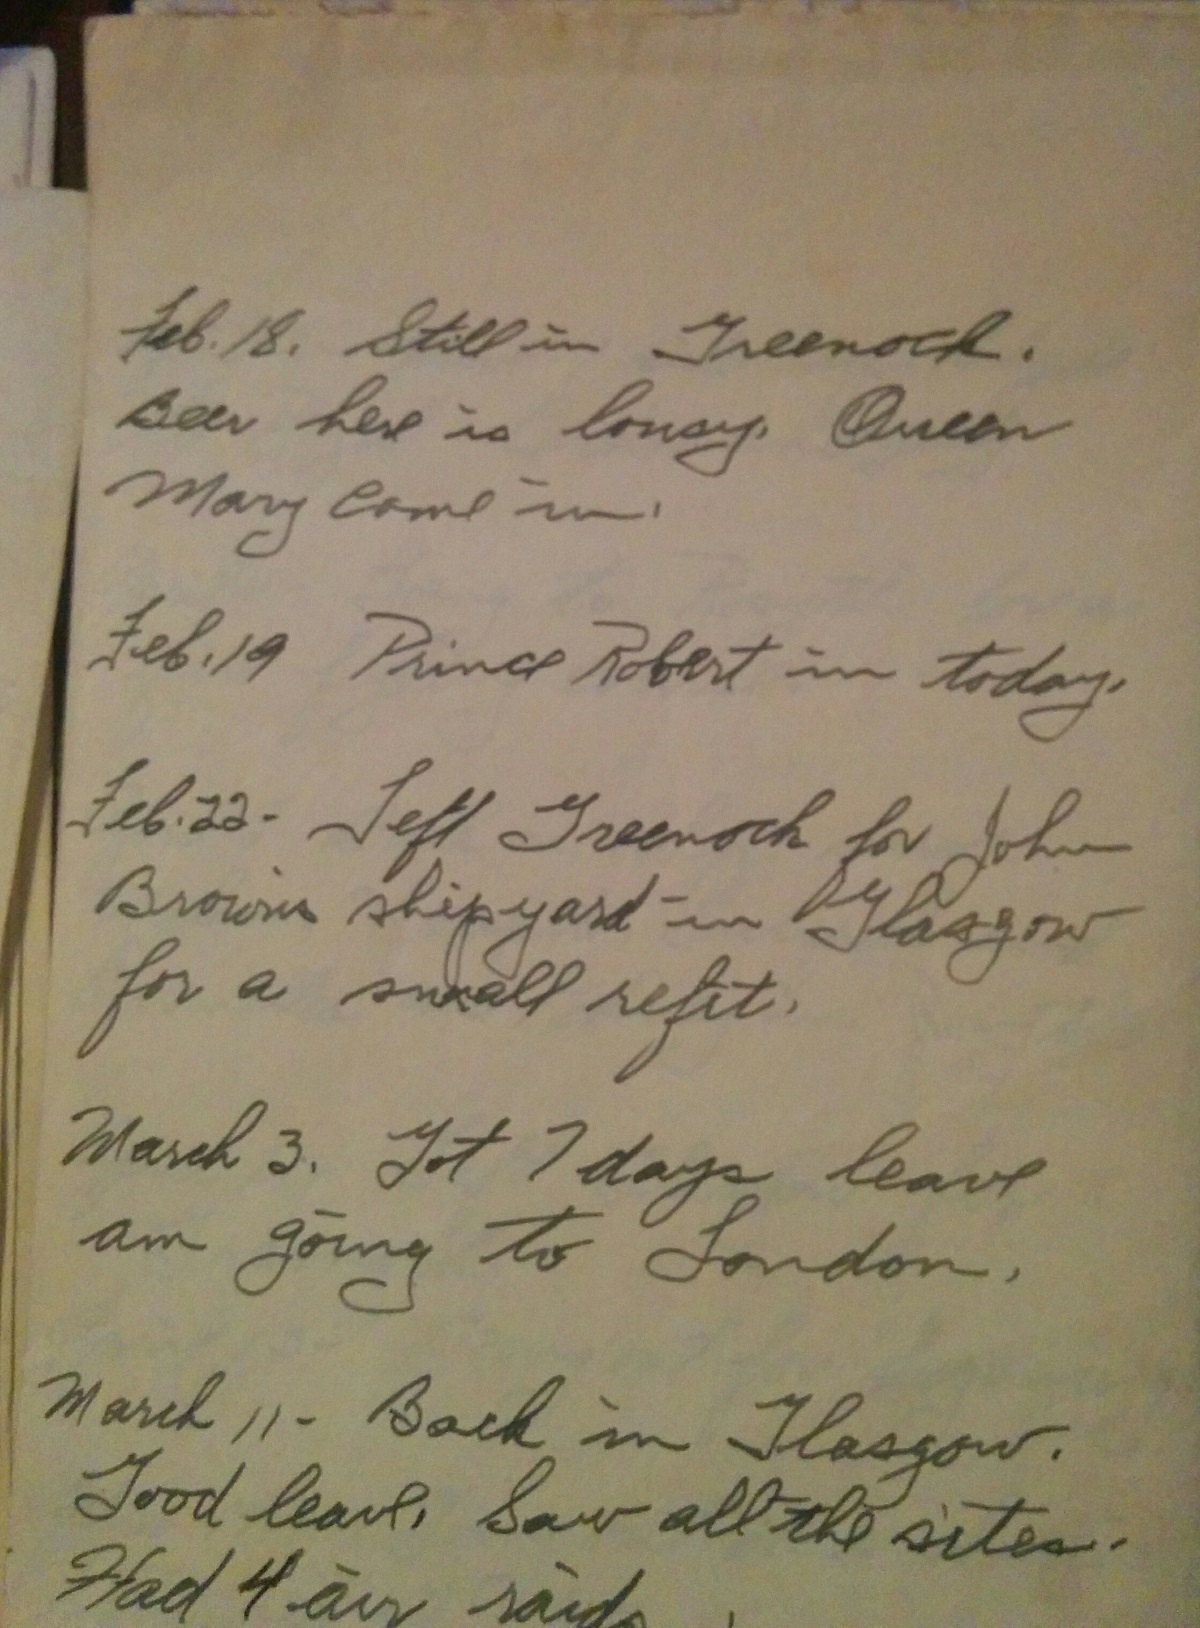 Feb. 18. Still in Greenock.
Beer here is lousy. Queen
Mary came in.
Feb. 19 Prince Robert in today.
Feb. 22- Left Greenock for John
Browns shipyard in Glasgow
for a small refit.
March 3. Got 7 days leave
am going to London.
March 11- Back in Glasgow.
Good leave. Saw all the sites.
Had 4 air raids.